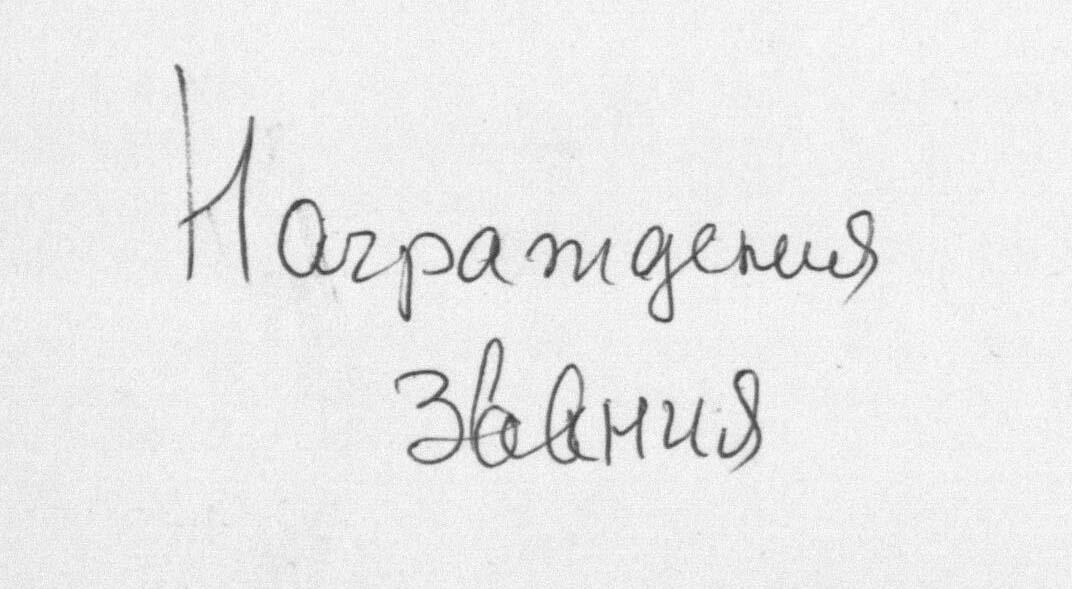 Награждения
Звания